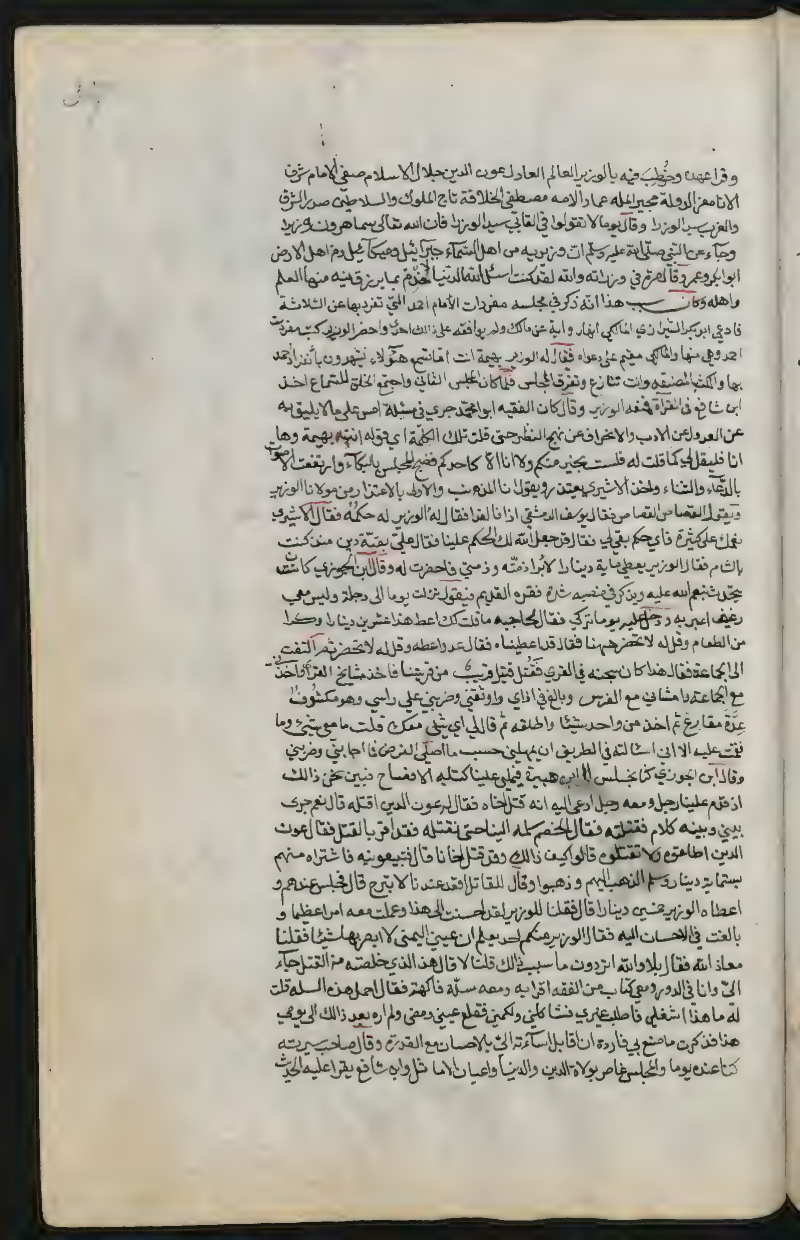 وقرا عهده وخوطب فيه بالوزير العالم العادل عون الدين جلال الاسلام صفي الامام شرف
الانام معز الدولة مجير المله عماد الامه مصطفى الخلافة تاج الملوك والسلاطين صدر الشرق
والغرب سيد الوزرا وقال يوما لا تقولوا في القابي سيد الوزرا فان الله تعالى سما هرون وزيرا
وجاء عن النبي صلى الله عليه وسلم ان وزيريه من اهل السماء جبرائيل وميكائيل ومن اهل الارض
ابوابكر وعمر وقال مرة في وزارته والله لقد كنت اسئل الله الدنيا لاخدم بما يرزقنيه منها العلم
واهله وكان سبب هذا انه ذكر في مجلسه مفردات الامام احمد التي تفرد بها عن الثلاثة
فادعى ابو بكر المالكي انها رواية عن مالك ولم يوافقه على ذالك احد واحضر الوزير كتب مفردات
احمد وهي منها والمالكي مقيم على دعواه فقال له الوزير بهيمة انت اما تسمع هؤلاء يشهدون بانفراد احمد
بها والكتب المصنفه وانت تنازع وتفرق المجلس فلما كان المجلس الثاني واجتمع الخلق للسماع اخذ
ابن شافع في القراة فمنعه الوزير وقال كان الفقيه ابو محمد جري في مسئلة امس على ما لا يليق به
عن العدول عن الادب والانحراف عن نهج النظر حتى قلت تلك الكلمة اي قوله انت بهيمة وها
انا فليقل لي كما قلت له فلست بخير منكم ولا انا الا كاحدكم فضج المجلس بالبكاء وارتفعت الاصوات
بالدعاء والثناء واخذ الاشيري يعتذر ويقول انا المذنب والاولى بالاعتذار من مولانا الوزير
ويقول القصاص القصاص فقال يوسف الدمشقي اذا ابا الفدا فقال له الوزير له حكمه فقال الاشيري
نعمك علي كثيرة فاي حكم بقي لي فقال قد جعل الله لك الحكم علينا فقال علي بقية دين منذ كنت
بالشام فقال الوزير يعطى ماية دينار لابراء ذمته وذمتي فاحضرت له وقال ابن الجوزي كان
يتحدث بنعم الله عليه ويذكر في منصبه شدة فقره القديم فيقول نزلت يوما الى دجلة وليس معي
رغيف اعبر به ودخل عليه يوما تركي فقال لحاجبه ما قلت لك اعط هذا عشرين دينارا وكذا
من الطعام وقل له لا تحضر ههنا فقال قد اعطيناه فقال عد واعطه وقل له لا تحضر ثم التفت
الى الجماعة فقال هذا كان شحنه في القرى فقتل قتيل قريب من قريتنا فاخذ مشايخ القرى واخذني
مع الجماعة وامشاني مع الفرس وبالغ في اذاي واوثقني وضربني على راسي وهو مكشوف
عدة مقارع ثم اخذ من واحد شيئا واطلقه ثم قال لي اي شي معك قلت ما معي شيء وما
نقمت عليه الا اني سالته في الطريق ان يمهلني حسب ما اصلي الفرض فما اجابني وضربني
وقال ابن الجوزي كنا نجلس الى ابن هبيرة فيملي علينا كتابه الافصاح فبين نحن ذالك
اذ قدم علينا رجل ومعه رجل ادعى اليه انه قتل اخاه فقال له عون الدين اقتلته قال نعم جرى
بيني وبينه كلام فقتلته فقال الخصم سلمه الينا حتى نقتله فقد اقر بالقتل فقال عون
الدين اطلقوه ولا تقتلوه قالوا كيف ذالك وقد قتل اخانا قال فتبيعونيه فاشتراه منهم
بستماية دينار وسلم الذهب اليهم وذهبوا وقال للقاتل اقعد عندنا لا تبرح قال فجلس عندهم و
اعطاه الوزير خمسين دينارا قال فقلنا للوزير لقد احسنت الى هذا وعملت معه امرا عظيما و
بالغت في الاحسان اليه فقال الوزير منكم احد يعلم ان عيني اليمنى لا ابصر بها شيئا فقلنا
معاذ الله فقال بلا والله اتدرون ما سبب ذالك قلنا لا قال هذا الذي خلصته من القتل جاء
الي وانا في الدور ومعي كتاب من الفقه اقرا به ومعه سلة فاكهة فقال احمل هذه السله قلت
له ما هذا شغلي فاطلب غيري فشاكلني ولكمني فقلع عيني ومضى ولم اره بعد ذالك الى يومي
هذا فذكرت ما صنع بي فاردت ان اقابل اسآءته الي بالاحسان مع القدرة وقال صاحب سيرته
كنا عنده يوما والمجلس غاص بولاة الدين والدنيا واعيان الاماثل وابن شافع يقرا عليه الحديث